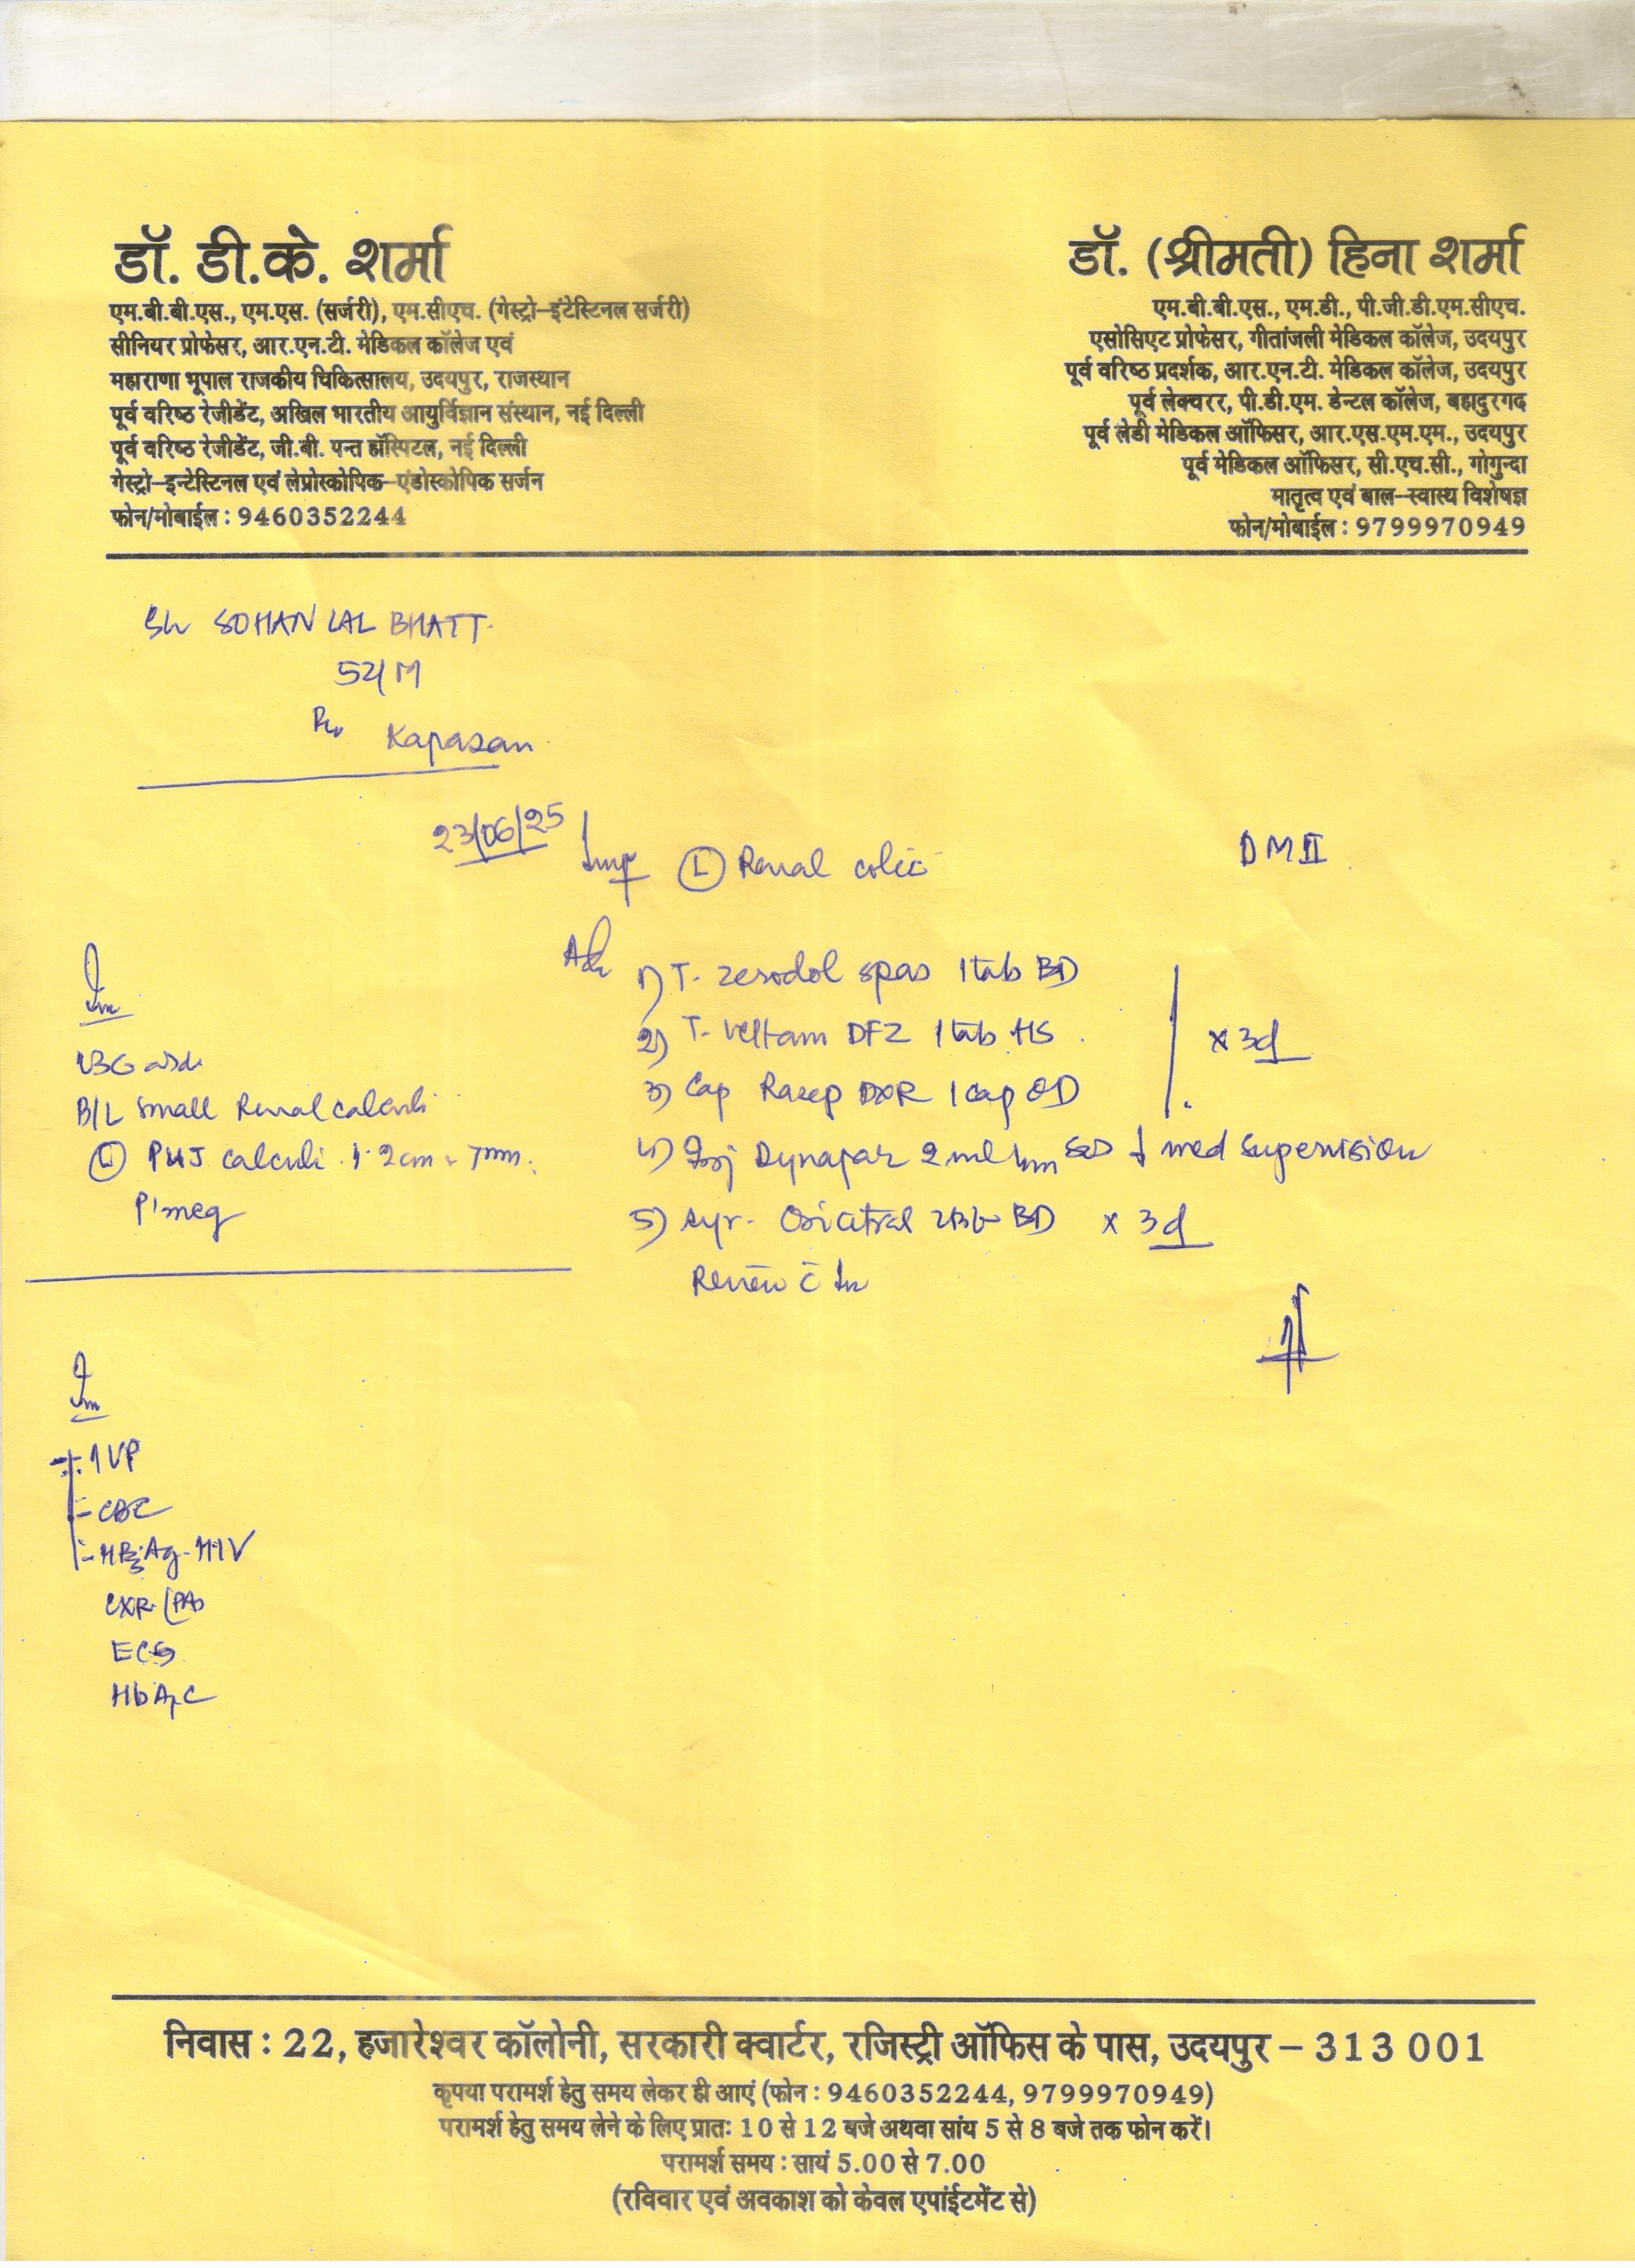 डॉ. डी.के. शर्मा
एम.बी.बी.एस., एम.एस. (सर्जरी), एम.सीएच. (गेस्ट्रो-इंटेस्टिनल सर्जरी)
सीनियर प्रोफेसर, आर.एन.टी. मेडिकल कॉलेज एवं
महाराणा भूपाल राजकीय चिकित्सालय, उदयपुर, राजस्थान
पूर्व वरिष्ठ रेजीडेंट, अखिल भारतीय आयुर्विज्ञान संस्थान, नई दिल्ली
पूर्व वरिष्ठ रेजीडेंट, जी.बी. पन्त हॉस्पिटल, नई दिल्ली
गेस्ट्रो-इन्टेस्टिनल एवं लेप्रोस्कोपिक-एंडोस्कोपिक सर्जन
फोन/मोबाईल : 9460352244
डॉ. (श्रीमती) हिना शर्मा
एम.बी.बी.एस., एम.डी., पी.जी.डी.एम.सीएच.
एसोसिएट प्रोफेसर, गीतांजली मेडिकल कॉलेज, उदयपुर
पूर्व वरिष्ठ प्रदर्शक, आर.एन.टी. मेडिकल कॉलेज, उदयपुर
पूर्व लेक्चरर, पी.डी.एम. डेन्टल कॉलेज, बहादुरगढ
पूर्व लेडी मेडिकल ऑफिसर, आर.एस.एम.एम., उदयपुर
पूर्व मेडिकल ऑफिसर, सी.एच.सी., गोगुन्दा
मातृत्व एवं बाल-स्वास्थ्य विशेषज्ञ
फोन/मोबाईल : 9799970949
SOHAN LAL BHATT
M
Kapasan
23/06/25
Imp (L) Renal colic
DM II
Adv
1) T. Zerodol spas 1 tab BD
2) T. Veltam DFZ 1 tab HS
3) Cap Razep DXR 1 cap OD
x 3d
4) Inj Dynapar 2 ml Im SOS med supervision
5) Syr. BD x 3d
Review c̄ Inv
Inv
USG
B/L small Renal calculi
(L) PUJ calculi 1.2 cm 7mm
P'meg
Inv
- IVP
- CBC
- HBsAg - HIV
CXR (PA)
ECG
HbA1C
निवास : 22, हजारेश्वर कॉलोनी, सरकारी क्वार्टर, रजिस्ट्री ऑफिस के पास, उदयपुर – 313 001
कृपया परामर्श हेतु समय लेकर ही आएं (फोन : 9460352244, 9799970949)
परामर्श हेतु समय लेने के लिए प्रातः 10 से 12 बजे अथवा सांय 5 से 8 बजे तक फोन करें।
परामर्श समय : सायं 5.00 से 7.00
(रविवार एवं अवकाश को केवल एपांईटमेंट से)